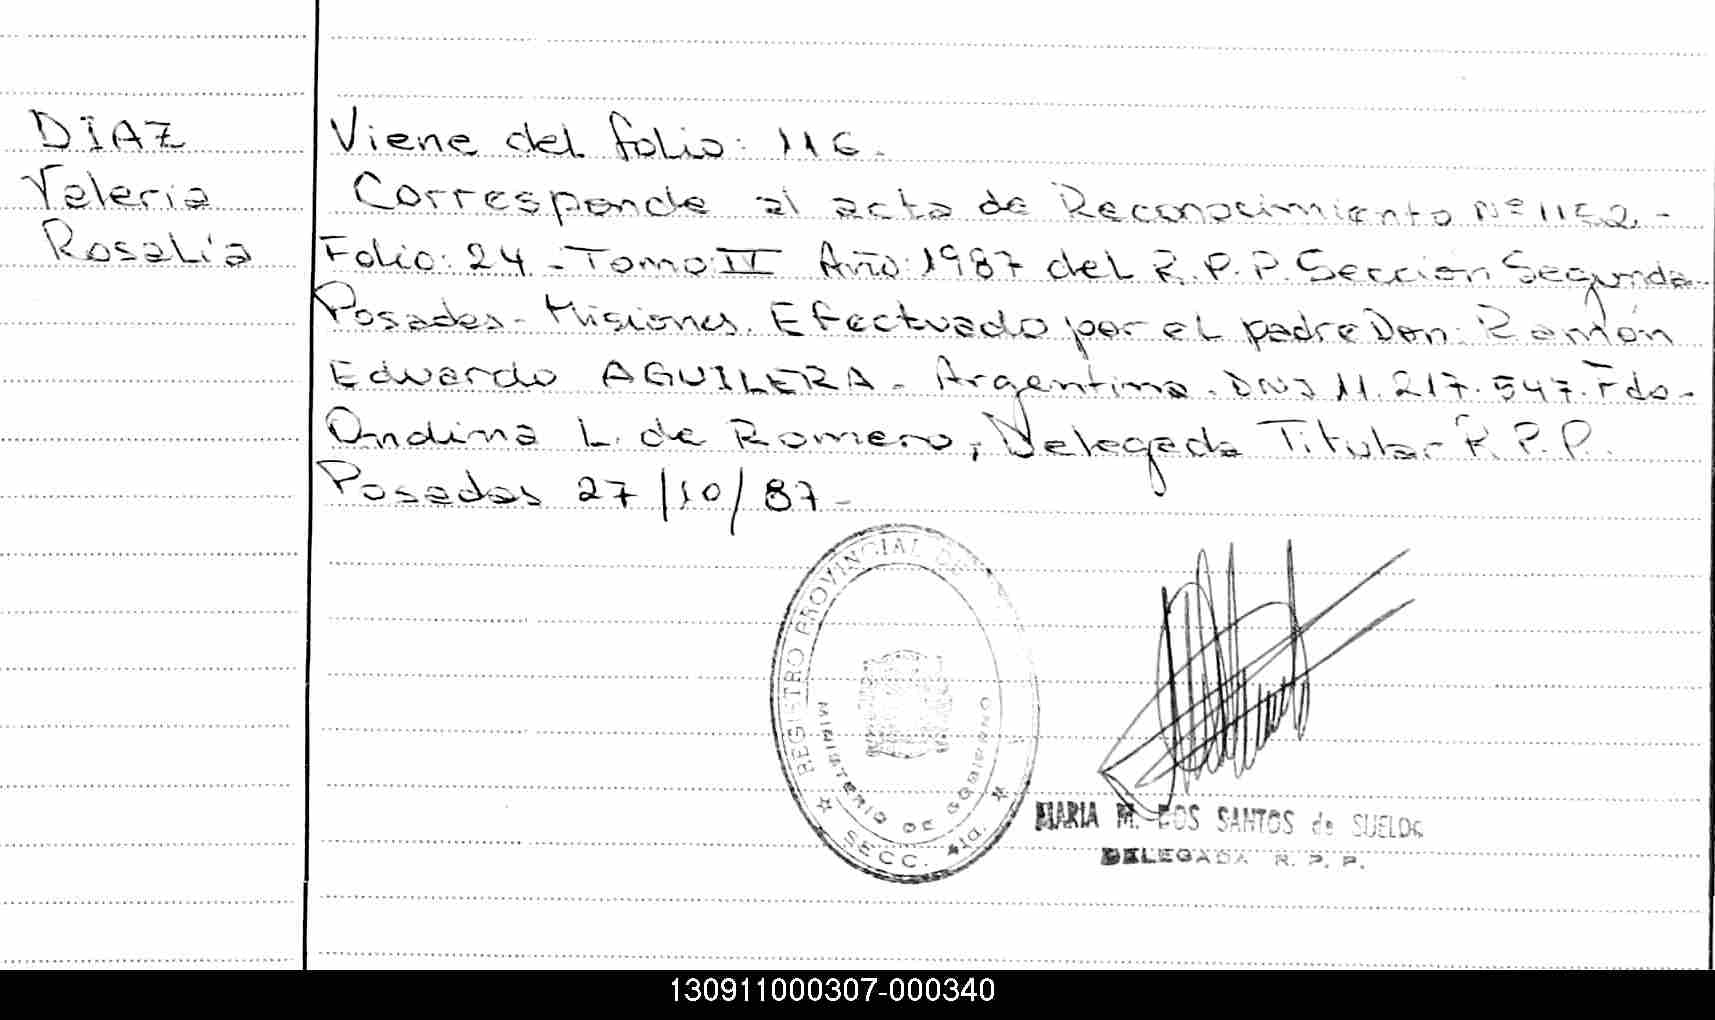 DIAZ
Valeria
Rosalía
Viene del folio: 116.
Corresponde al acta de Reconocimiento Nº 1152.-
Folio: 24 - Tomo: IV Año: 1987 del R.P.P. Sección Segunda
Posadas - Misiones. Efectuado por el padre Don: Ramón
Eduardo AGUILERA - Argentino. DNI 11.217.547. Fdo-
Ondina L. de Romero, Delegada Titular R.P.P.
Posadas 27/10/87-
REGISTRO PROVINCIAL DE
MINISTERIO DE GOBIERNO
SECC. 4ta.
MARIA M. DOS SANTOS de SUELDO
DELEGADA R. P. P.
130911000307-000340